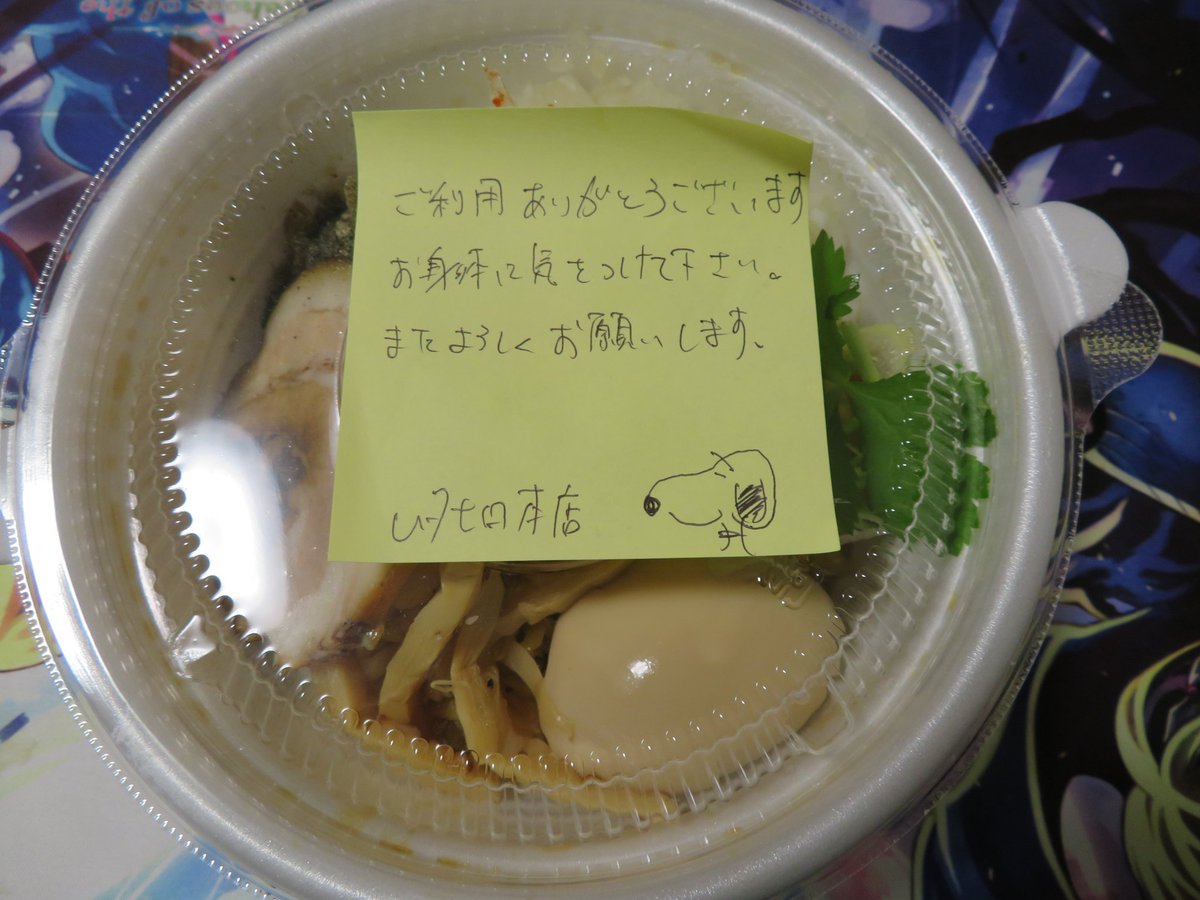 hoes of the
ご利用ありがとうございます
お身体に気をつけて下さい。
またよろしくお願いします。
本店